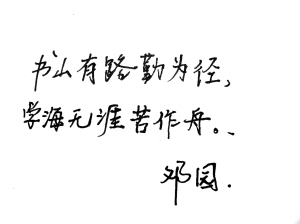 书山有路勤为径,
学海无涯苦作舟。.
邓园.